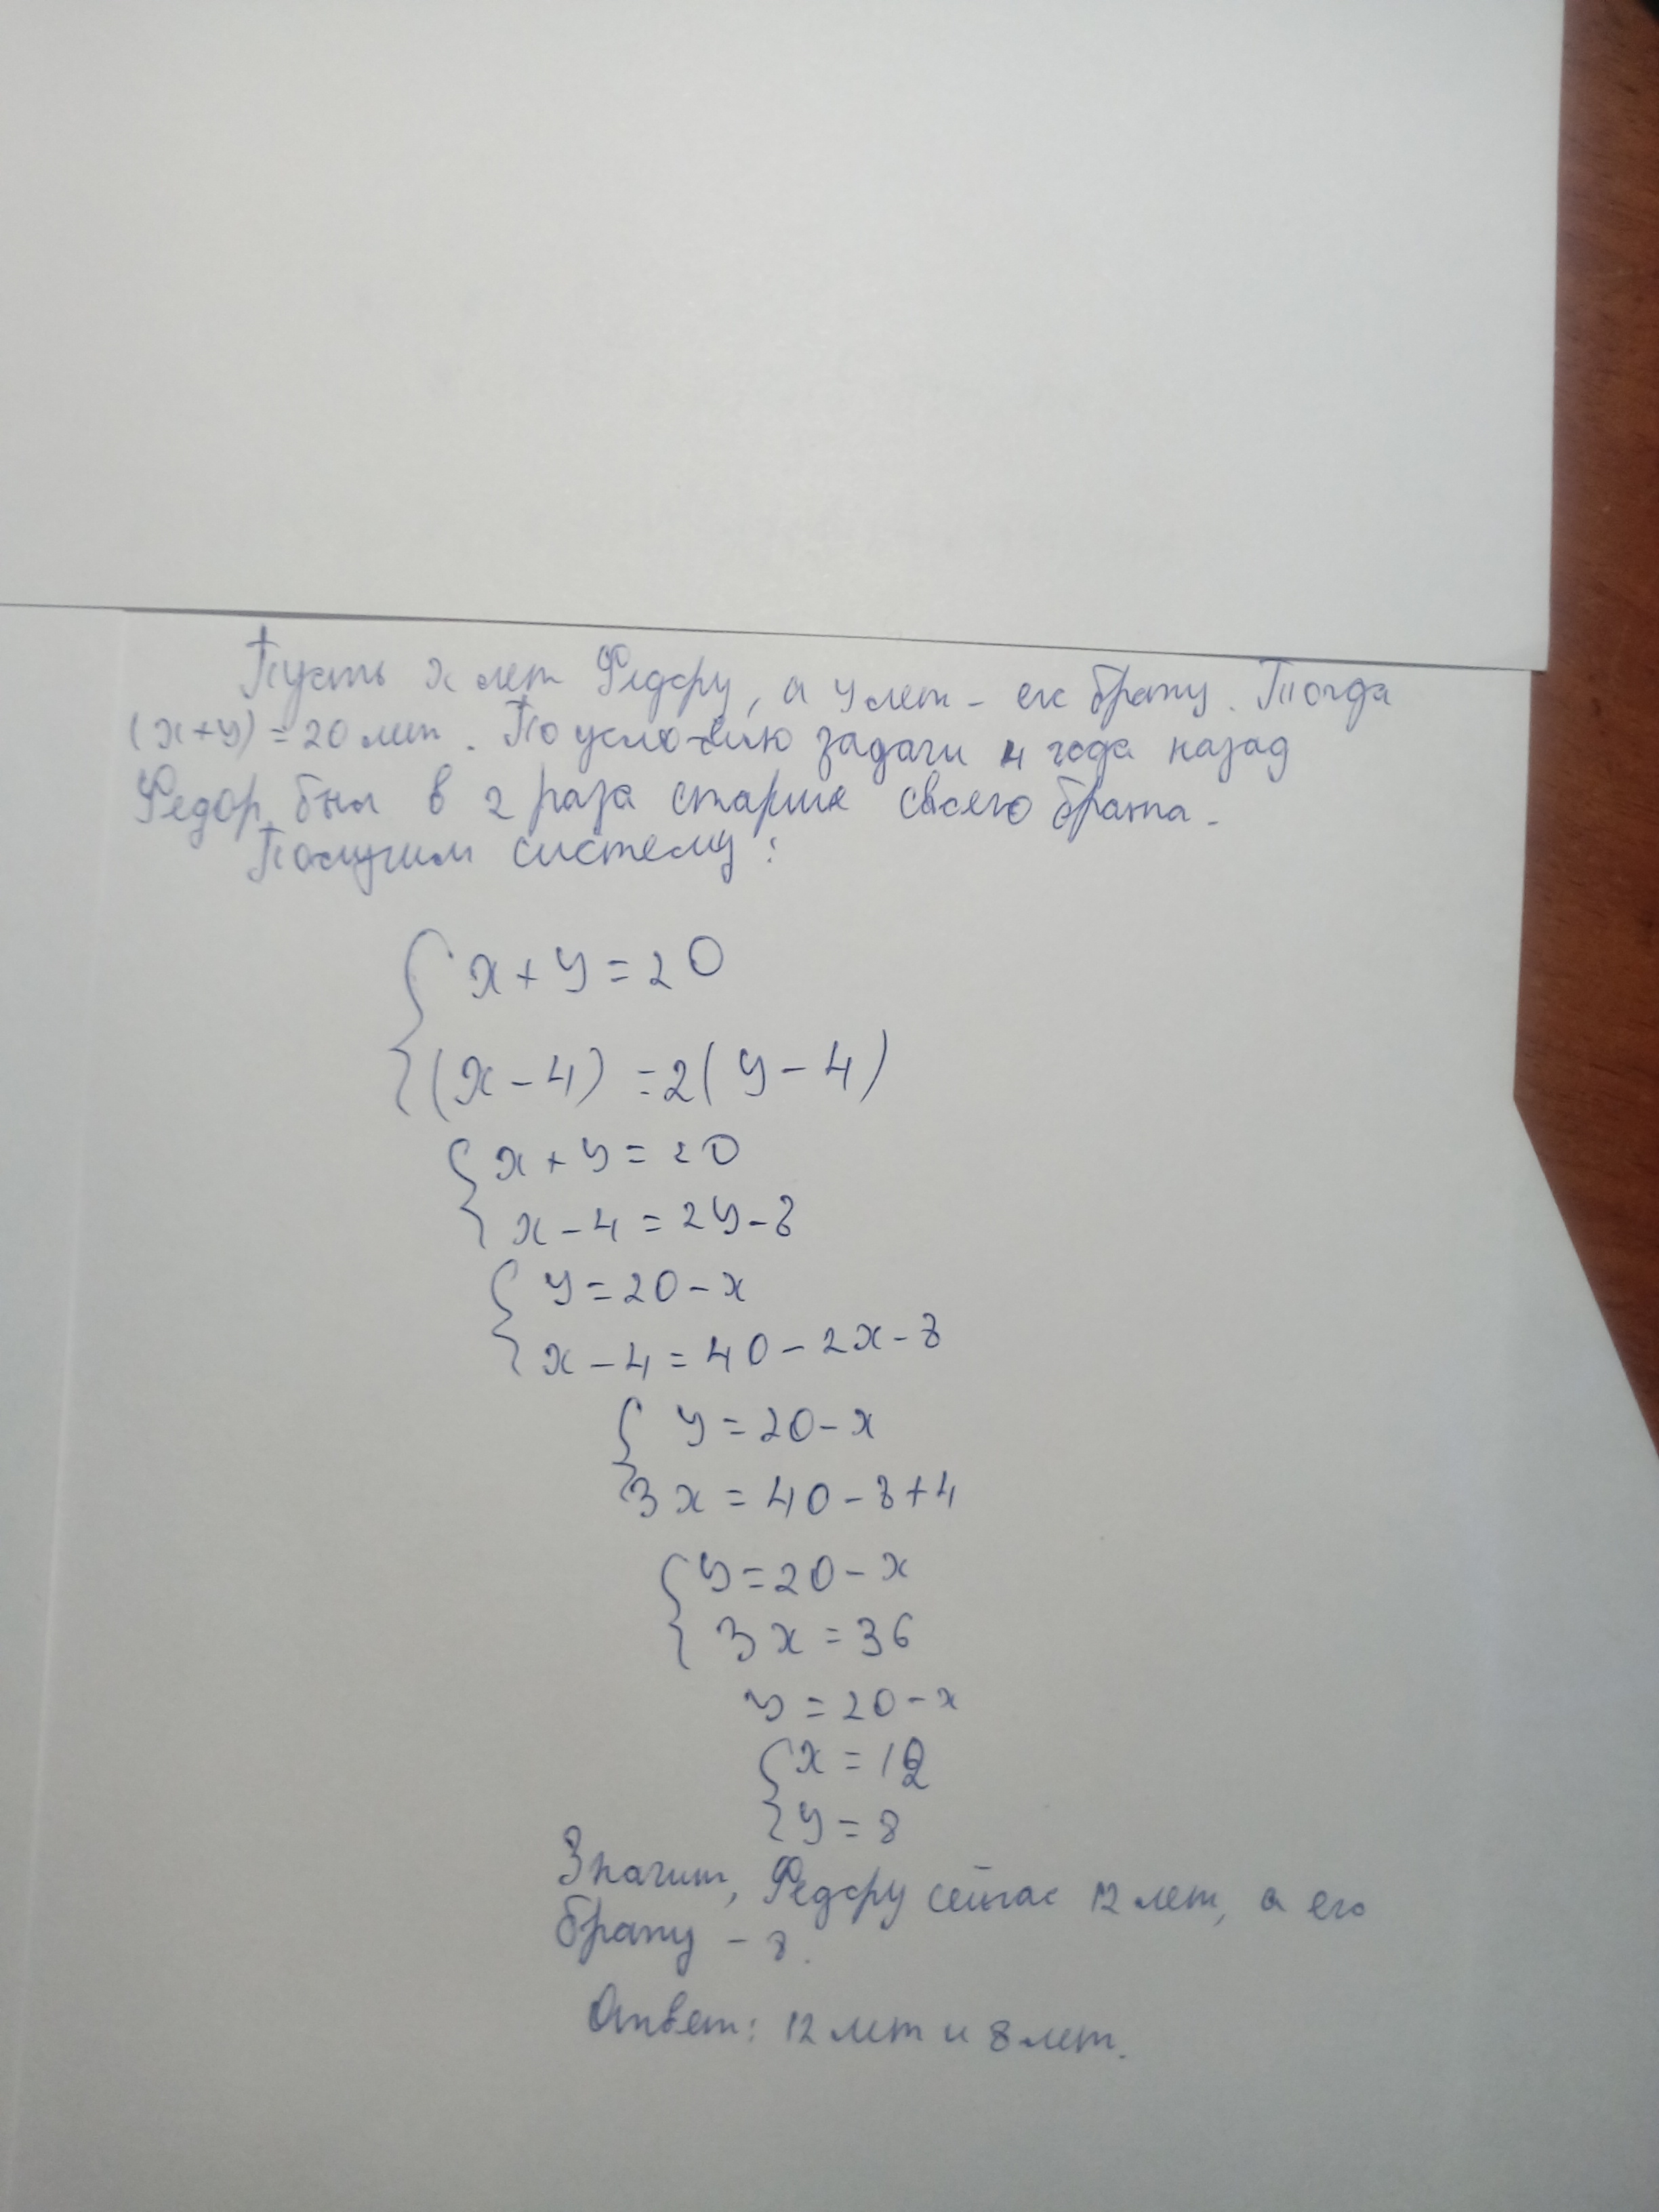 Пусть x лет Федору, а y лет - его брату. Тогда
(x+y) = 20 лет. По условию задачи 4 года назад
Федор был в 2 раза старше своего брата.
Получим систему:
x+y=20
(x-4) =2(y-4)
x+y=20
x-4=2y-8
y=20-x
x-4=40-2x-8
y=20-x
3x=40-8+4
y=20-x
3x=36
y=20-x
x=12
y=8
Значит, Федору сейчас 12 лет, а его
брату - 8.
Ответ: 12 лет и 8 лет.